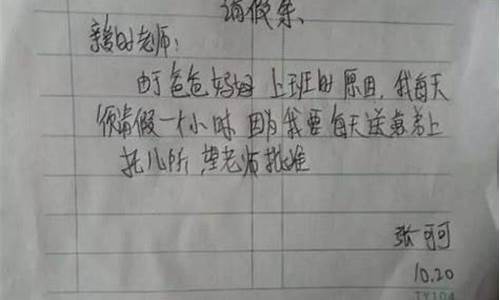 请假条
亲爱的老师：
由于爸爸妈妈上班的原因，我每天
须请假一个小时，因为我要每天送弟弟上
托儿所，望老师批准
张可可
10.20